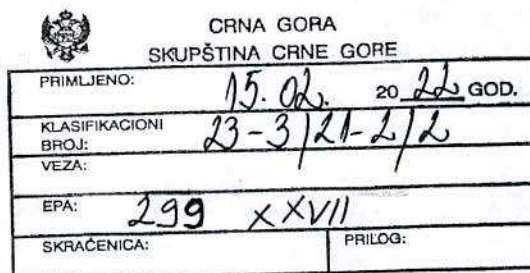 CRNA GORA
SKUPŠTINA CRNE GORE
PRIMLJENO: 15. 02. 20 22 GOD.
KLASIFIKACIONI BROJ: 23-3/21-2/2
VEZA:
EPA: 299 XXVII
SKRAĆENICA: PRILOG: